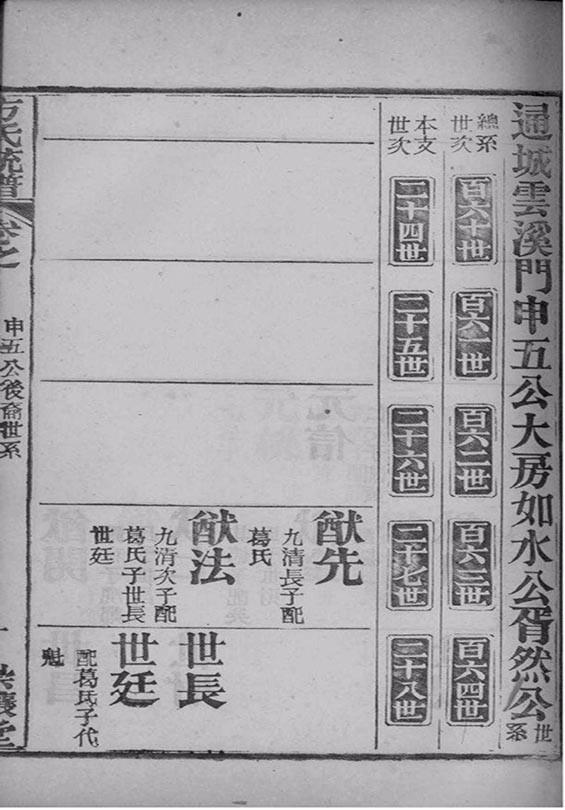 通城雲溪門申五公大房如水公胥然公世系
總系世次
百六十世
百六一世
百六二世
百六三世
百六四世
本支世次
二十四世
二十五世
二十六世
二十七世
二十八世
猷先
九清長子配
葛氏
猷法
九清次子配
葛氏子世長
世廷
世長
世廷
配葛氏子代
魁
方氏統譜
卷之
申五公後裔世系